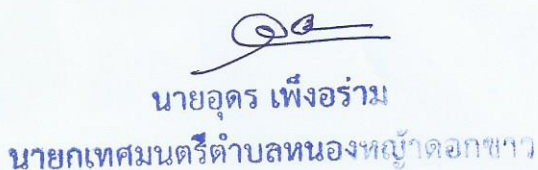 นายอุดร เพ็งอร่าม
นายกเทศมนตรีตำบลหนองหญ้าดอกขาว